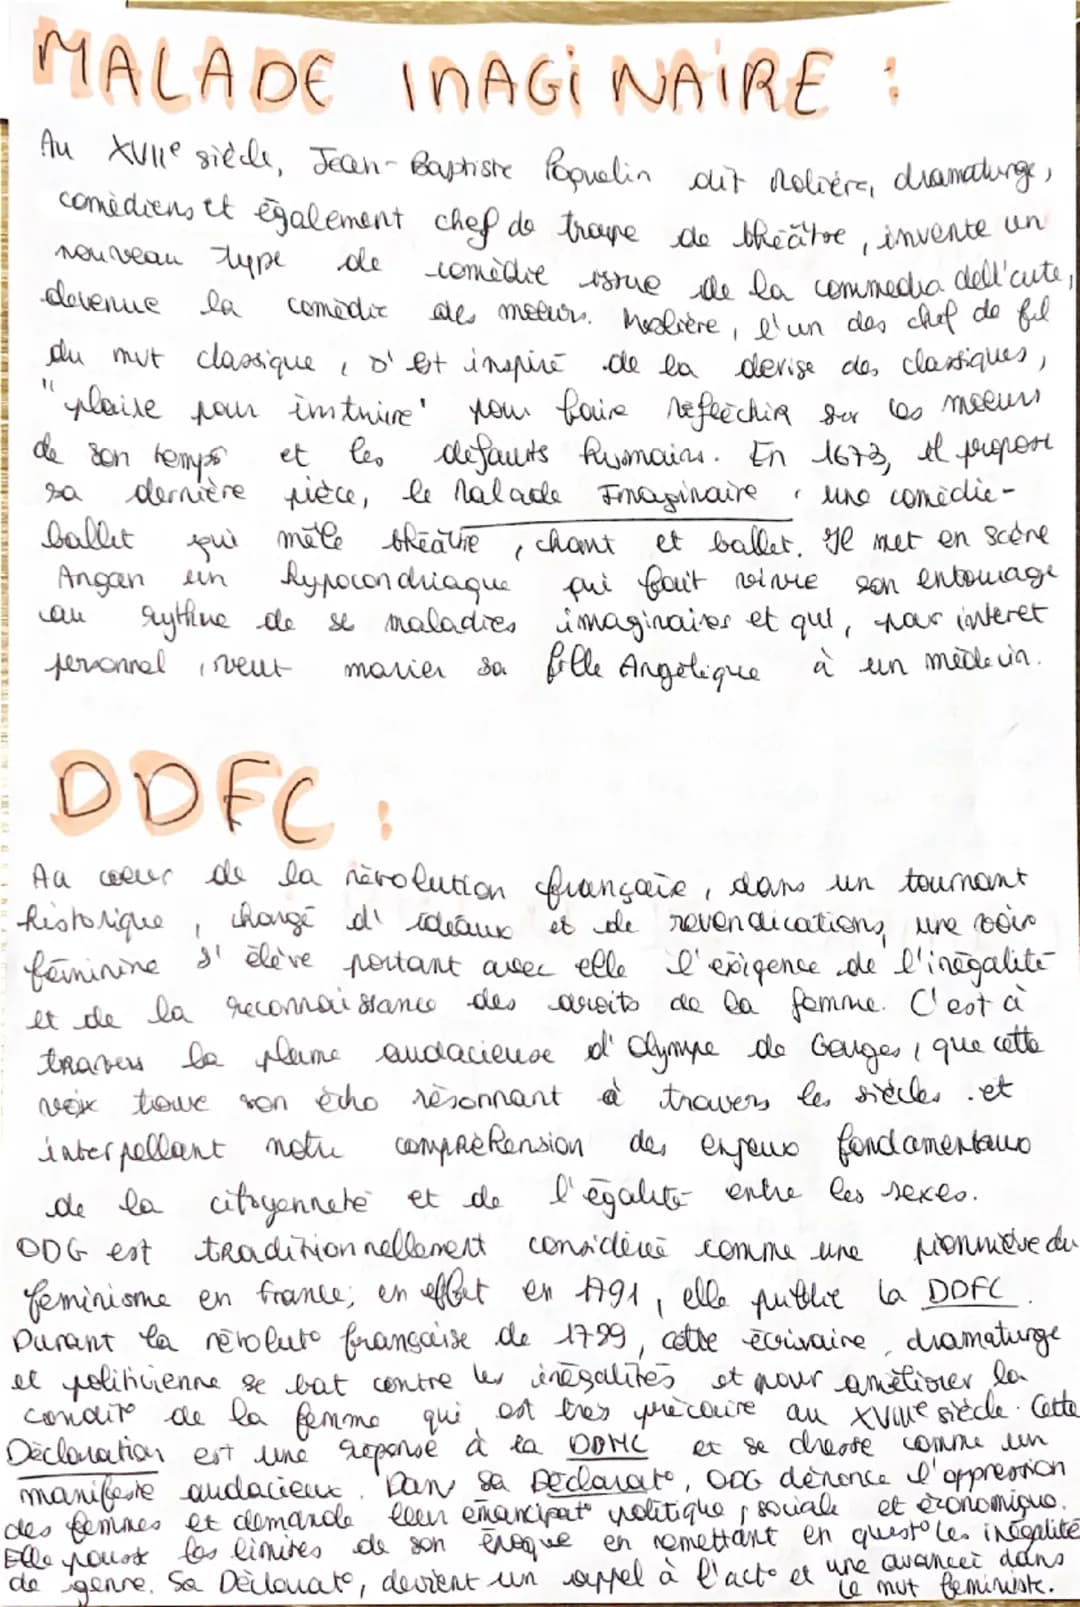 MALADE INAGINAIRE :
Au XVIIe siècle, Jean-Baptiste Poquelin dit Molière, dramaturge,
comédiens et également chef de troupe de théâtre, invente un
nouveau type de comédie issue de la commedia dell'arte,
devenue la comédie des mœurs. Molière, l'un des chef de fil
du mvt classique, s'est inspiré de la devise des classiques,
"plaire pour instruire" pour faire réfléchir sur les mœurs
de son temps et les défauts humains. En 1673, il propose
sa dernière pièce, le Malade Imaginaire, une comédie-
ballet qui mêle théâtre, chant et ballet. Il met en scène
Argan un hypocondriaque qui fait vivre son entourage
au rythme de se maladies imaginaires et qui, par intéret
personnel, veut marier sa fille Angélique à un médecin.
DDFC :
Au cœur de la révolution française, dans un tournant
historique, chargé d'idéaux et de revendications, une voix
féminine s'élève portant avec elle l'exigence de l'inégalité
et de la reconnaissance des droits de la femme. C'est à
travers la plume audacieuse d'Olympe de Gouges, que cette
voix trouve son écho résonnant à travers les siècles et
interpellant notre compréhension des enjeux fondamentaux
de la citoyenneté et de l'égalité entre les sexes.
ODG est traditionnellement considérée comme une pionnière du
féminisme en france; en effet en 1791, elle publie la DDFC.
Durant la révolut° française de 1799, cette écrivaine, dramaturge
et politicienne se bat contre les inégalités et pour améliorer la
condit° de la femme qui est très précaire au XVIIIe siècle. Cette
Déclaration est une réponse à la DDHC et se dresse comme un
manifeste audacieux. Dans sa Déclarat°, ODG dénonce l'oppression
des femmes et demande leur émancipat° politique, sociale et économique.
Elle pousse les limites de son époque en remettant en quest° les inégalité
de genre. Sa Déclarat°, devient un appel à l'act° et une avancée dans
le mvt féministe.